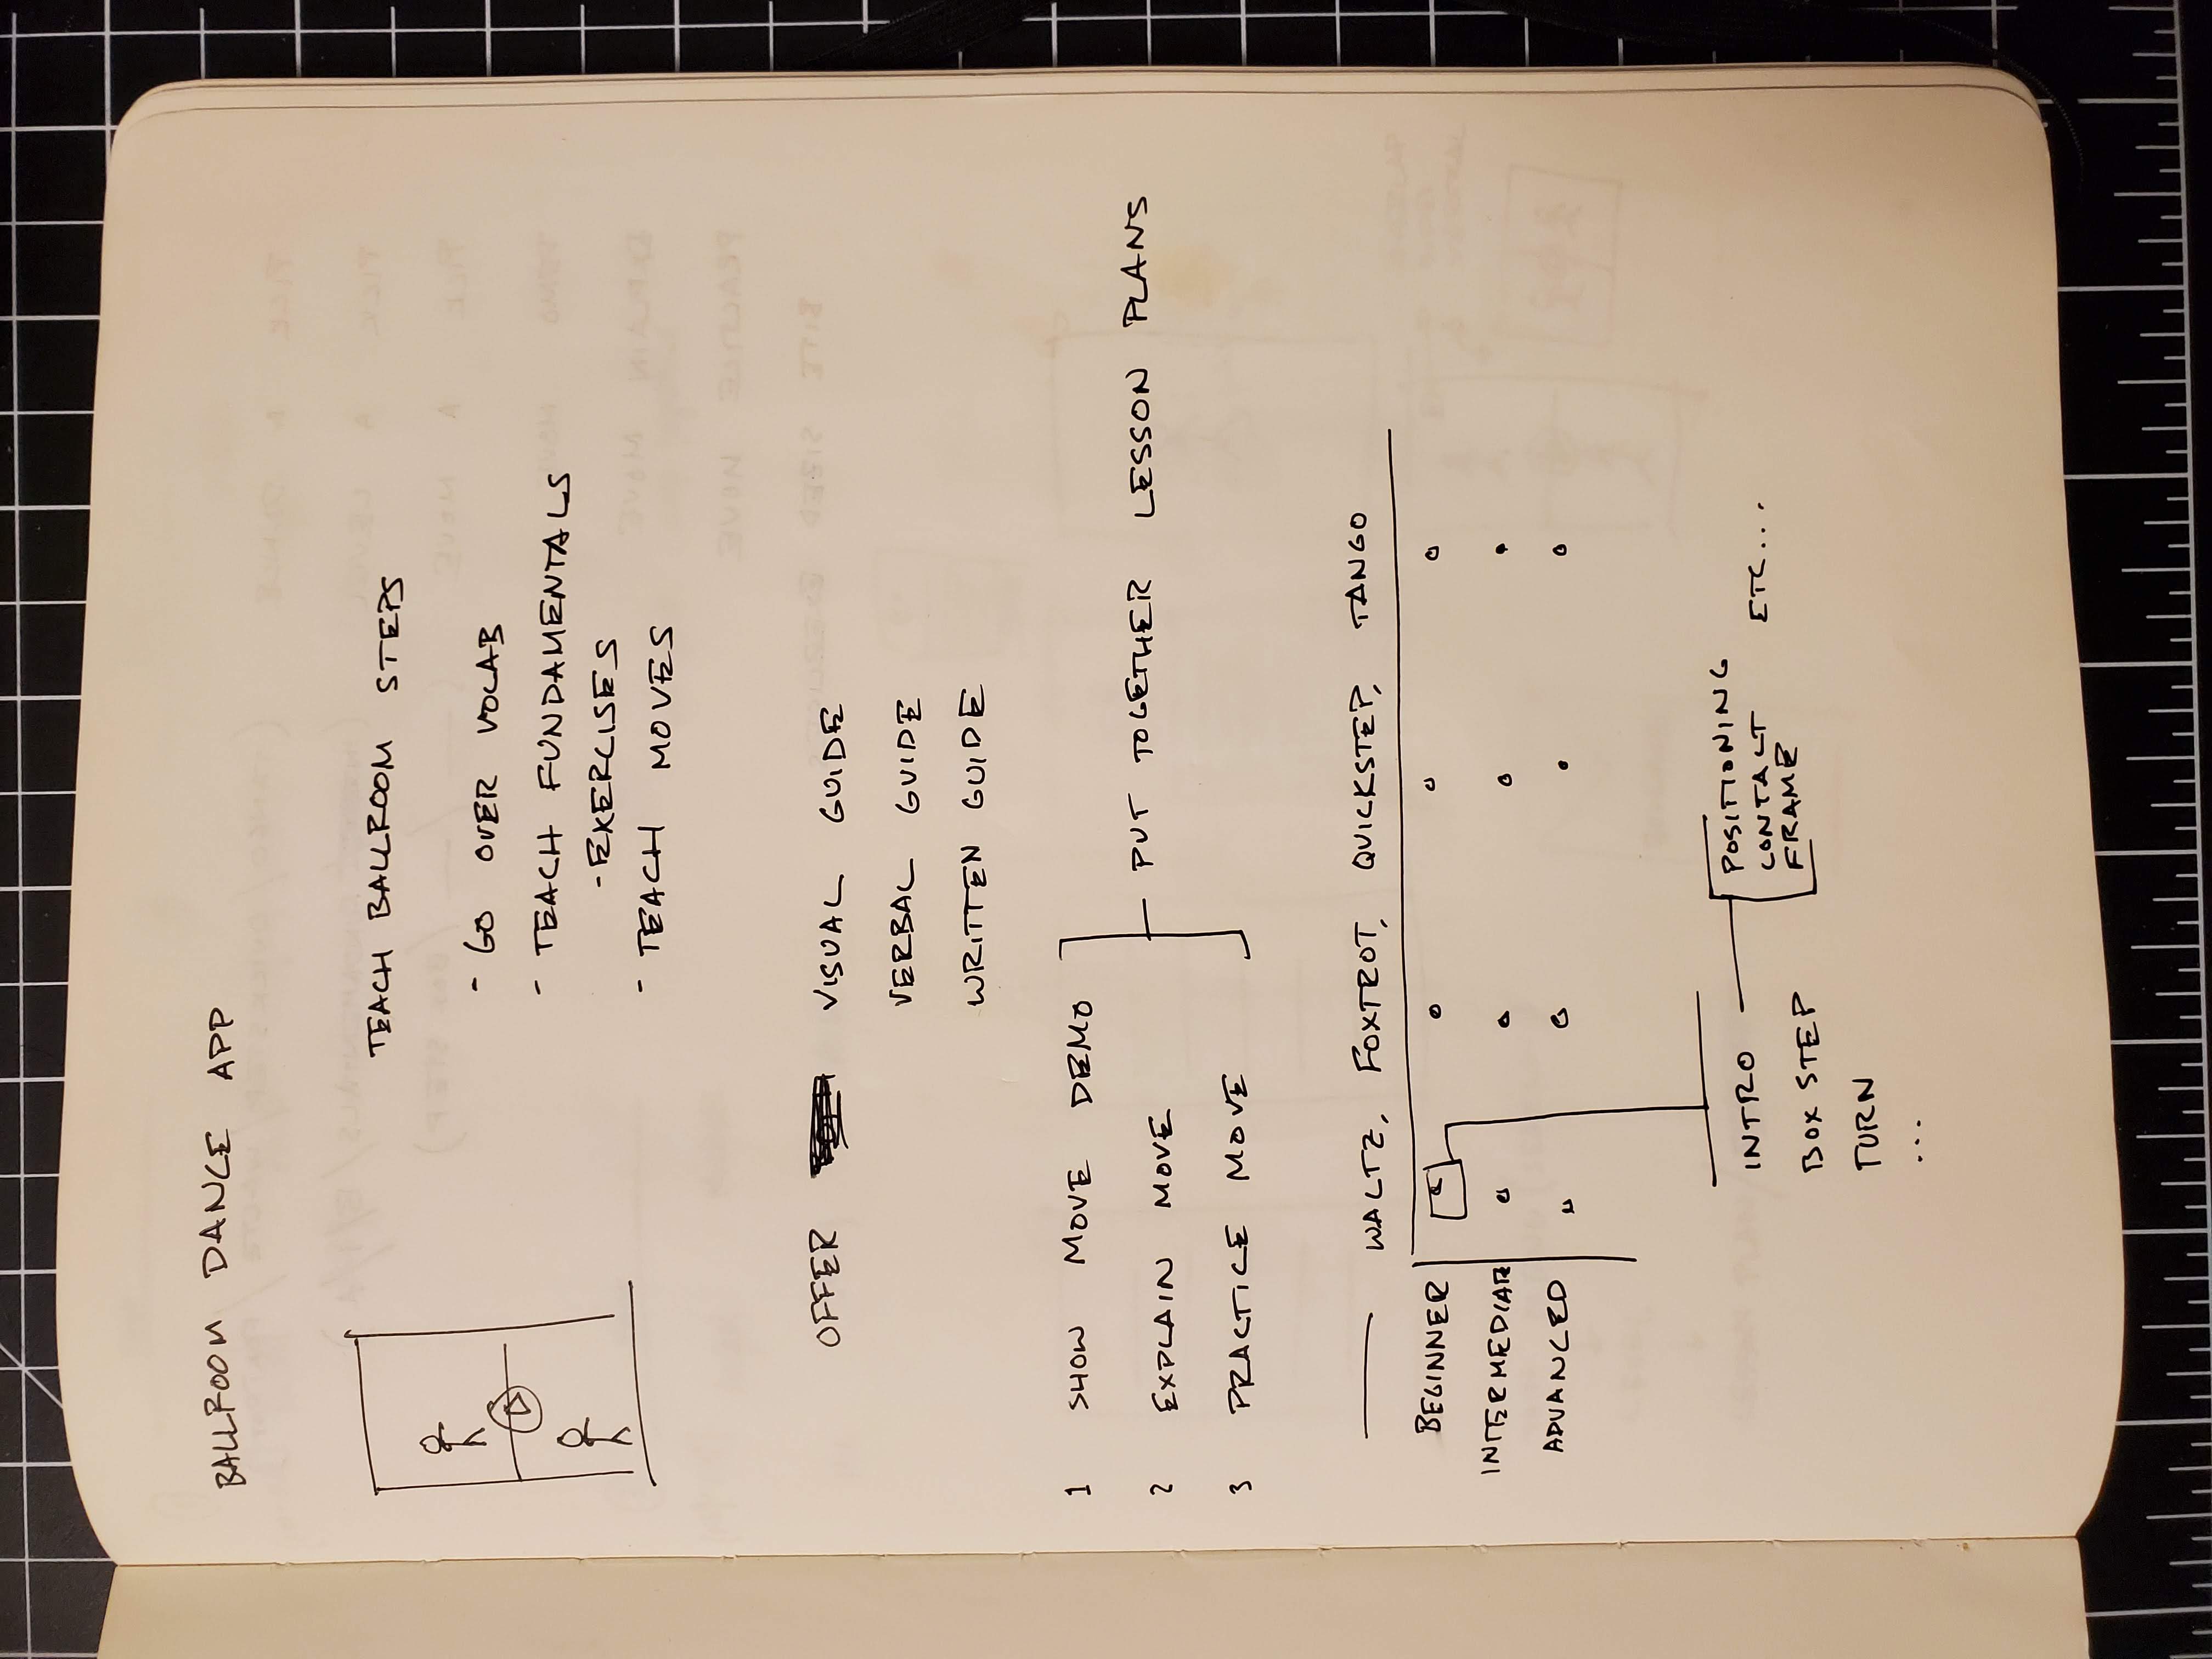 BALLROOM DANCE APP
TEACH BALLROOM STEPS
- GO OVER VOCAB
- TEACH FUNDAMENTALS
- EXERCISES
- TEACH MOVES
OFFER VISUAL GUIDE
VERBAL GUIDE
WRITTEN GUIDE
1 SHOW MOVE DEMO
2 EXPLAIN MOVE
3 PRACTICE MOVE
PUT TOGETHER LESSON PLANS
WALTZ, FOXTROT, QUICKSTEP, TANGO
BEGINNER
INTERMEDIATE
ADVANCED
INTRO
POSITIONING
CONTACT ETC...
FRAME
BOX STEP
TURN
...